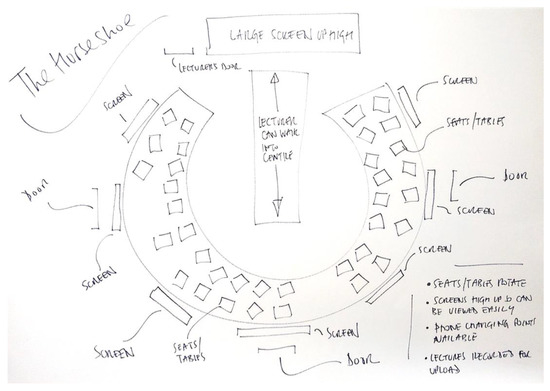 The Horseshoe
LARGE SCREEN UP HIGH
LECTURERS DOOR
SCREEN
SCREEN
LECTURER
CAN WALK
INTO
CENTRE
SEATS/TABLES
DOOR
DOOR
SCREEN
SCREEN
SCREEN
SCREEN
SEATS/
TABLES
SCREEN
DOOR
• SEATS/TABLES ROTATE
• SCREENS HIGH UP & CAN
BE VIEWED EASILY
• PHONE CHARGING POINTS
AVAILABLE
• LECTURES RECORDED FOR
UPLOAD